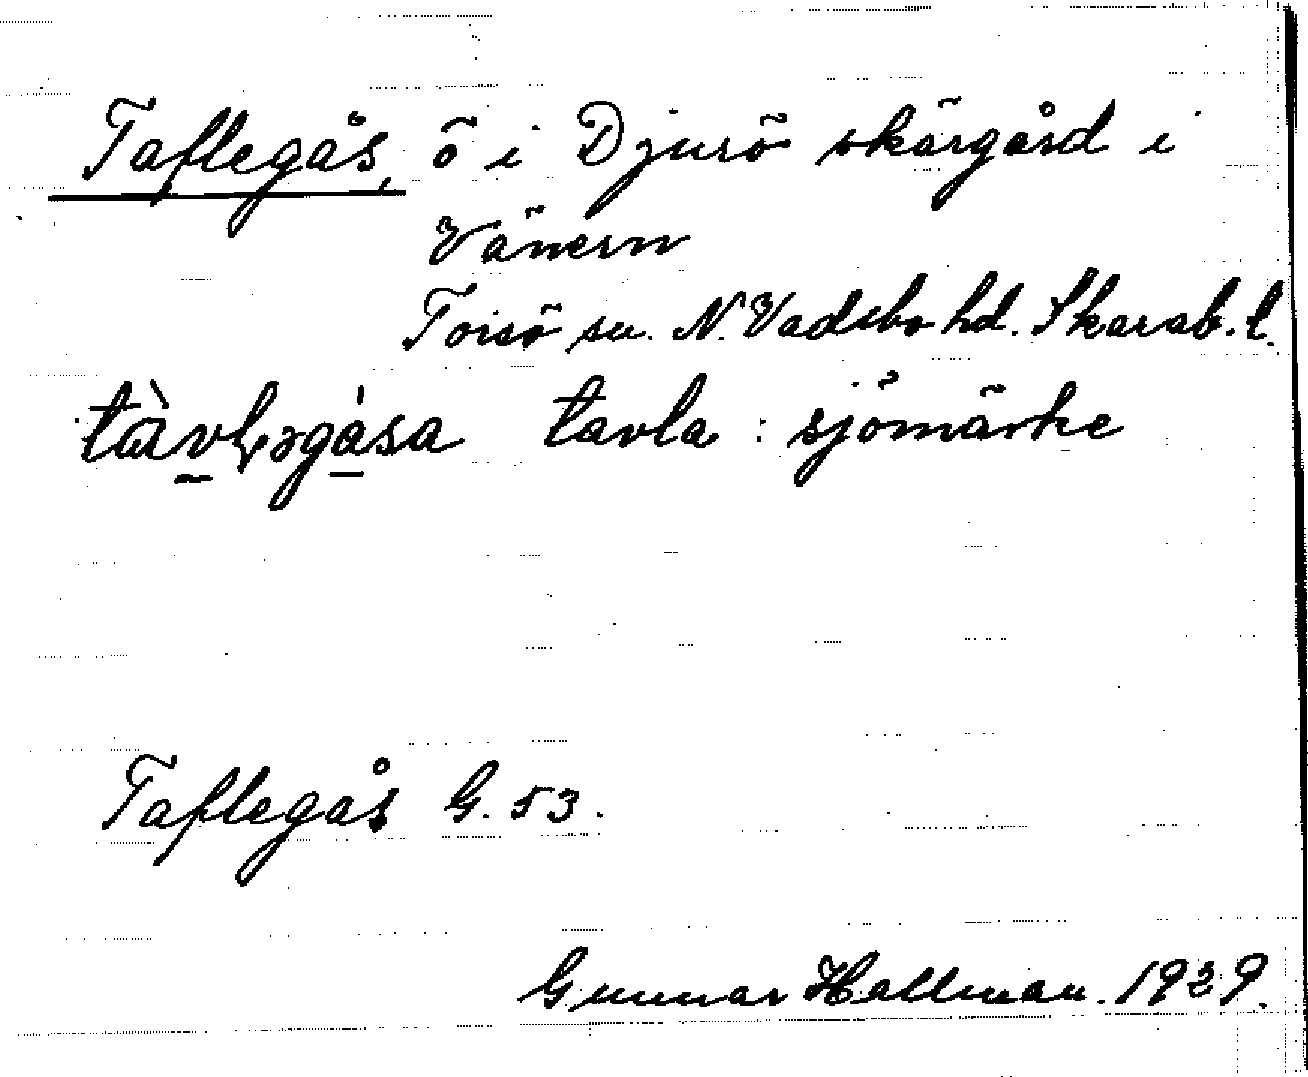 Taflegås, ö i Djurö skärgård i
Vänern
Torsö sn. N. Vadsbo hd. Skarab. l.
tavla : sjömärke
Taflegås G. 53.
Gunnar Hallman. 1929.